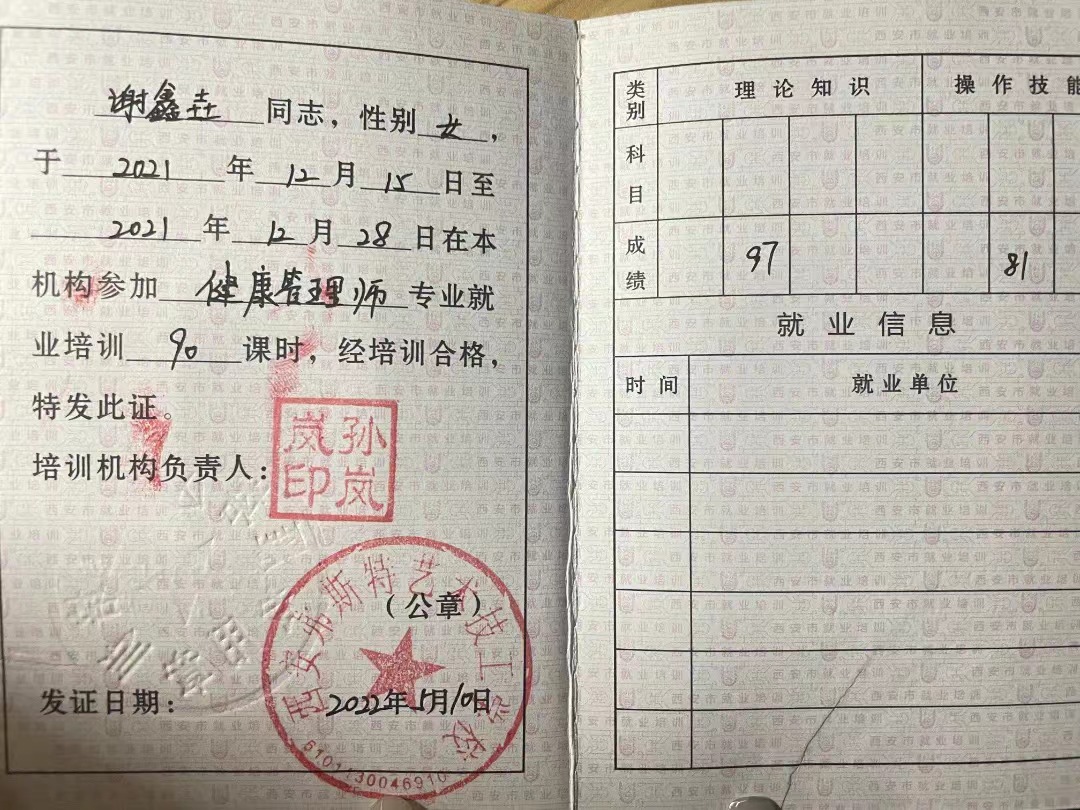 谢鑫垚 同志，性别 女，
于 2021 年 12 月 15 日至
2021 年 12 月 28 日在本
机构参加 健康管理师 专业就
业培训 90 课时，经培训合格，
特发此证。
培训机构负责人：
孙岚
岚印
西安弗斯特艺术技工学校
（公章）
发证日期： 2022年5月10日
类别 理论知识 操作技能
科目
成绩 97 81
就业信息
时间 就业单位